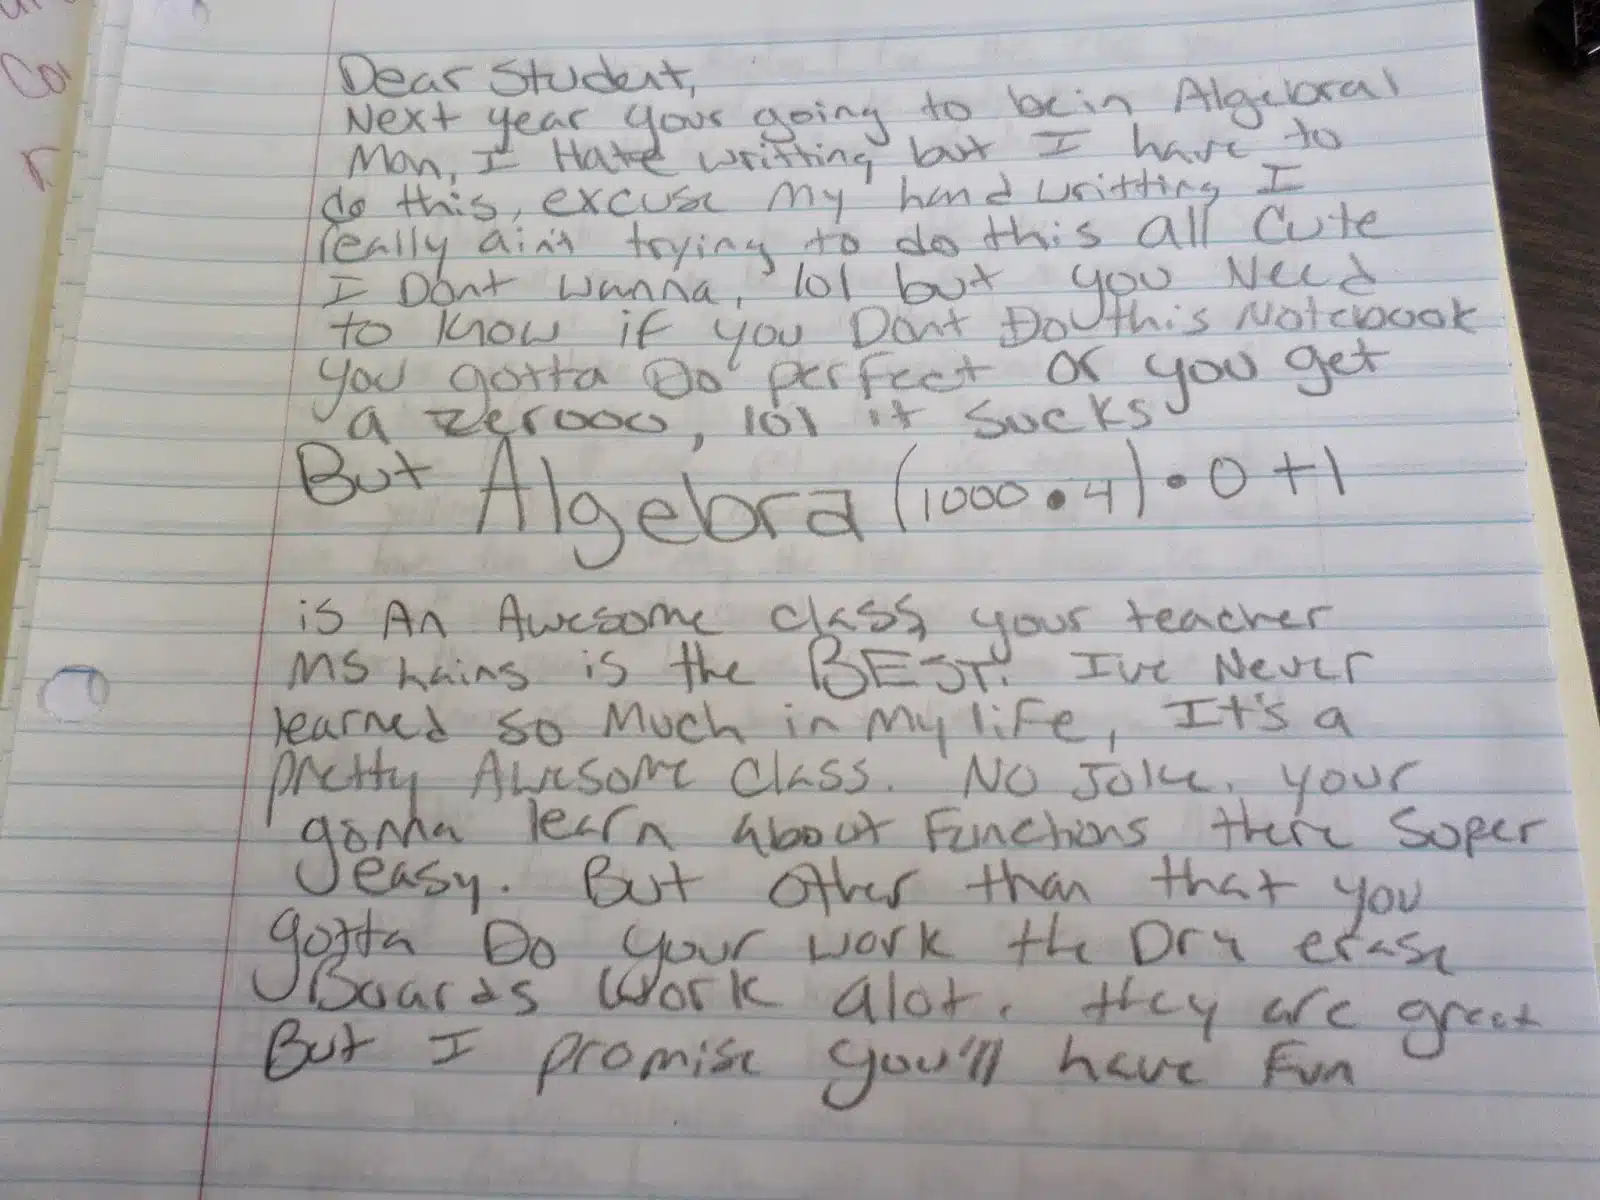 Dear Student,
Next year your going to be in Algebra 1
Man, I Hate writting but I have to
do this, excuse my handwritting I
really ain't trying to do this all cute
I Dont wanna, lol but you Need
to know if you Dont Do this Notebook
you gotta Do perfect or you get
a zerooo, lol it sucks
But Algebra (1000 • 4) • 0 + 1
is An Awesome class, your teacher
MS hains is the BEST! I've Never
learned so Much in my life, It's a
pretty Awesome Class. No Joke. your
gonna learn About Functions there Super
easy. But other than that you
gotta Do your work the Dry erase
Boards work alot. they are great
But I promise you'll have Fun
Co